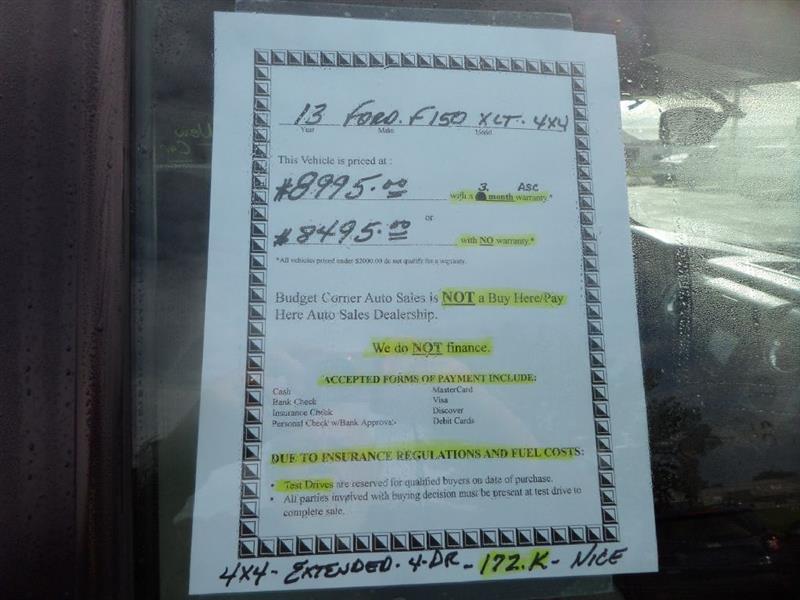 13 FORD. F150 XLT. 4X4
Year Make Model
This Vehicle is priced at :
$8995.00 with a 3. month warranty* ASC
or
$8495.00 with NO warranty.*
*All vehicles priced under $2000.00 do not qualify for a warranty.
Budget Corner Auto Sales is NOT a Buy Here/Pay
Here Auto Sales Dealership.
We do NOT finance.
ACCEPTED FORMS OF PAYMENT INCLUDE:
Cash MasterCard
Bank Check Visa
Insurance Check Discover
Personal Check w/Bank Approval- Debit Cards
DUE TO INSURANCE REGULATIONS AND FUEL COSTS:
• Test Drives are reserved for qualified buyers on date of purchase.
• All parties involved with buying decision must be present at test drive to
complete sale.
4X4- EXTENDED. 4-DR- 172.K- NICE